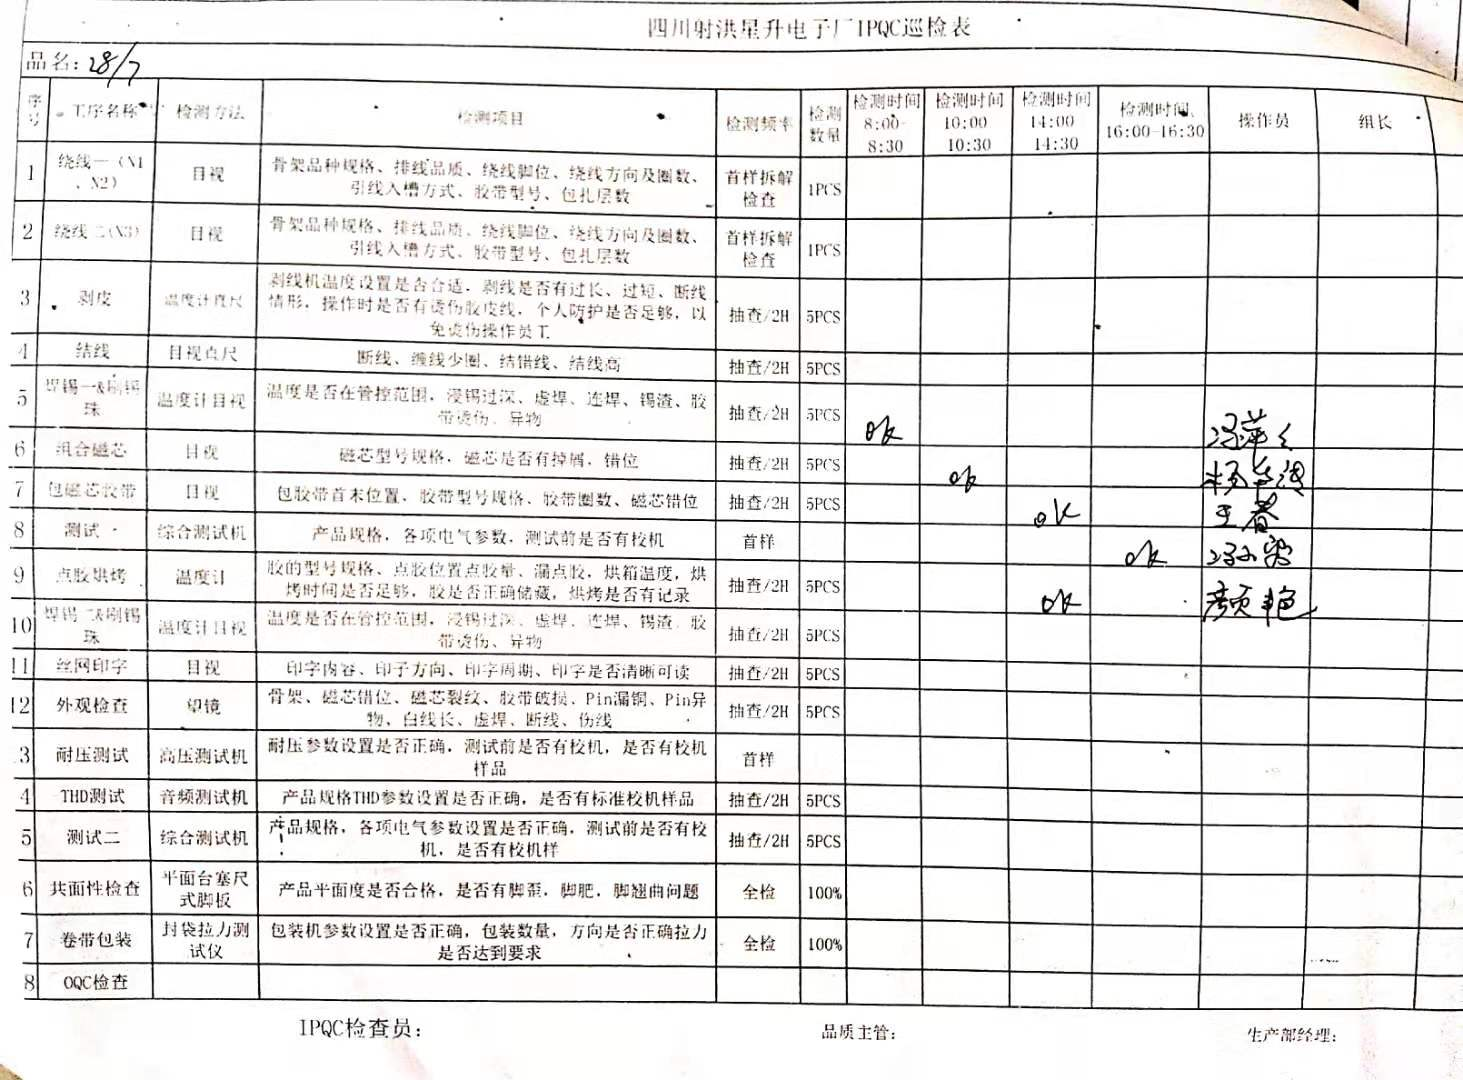 四川射洪星升电子厂IPQC巡检表
品名: 28/7
序号 工序名称 检测方法 检测项目 检测频率 检测数量 检测时间 8:00-8:30 检测时间 10:00 10:30 检测时间 14:00 14:30 检测时间 16:00-16:30 操作员 组长
1 绕线一（N1、N2） 目视 骨架品种规格、排线品质、绕线脚位、绕线方向及圈数、引线入槽方式、胶带型号、包扎层数 首样拆解检查 1PCS
2 绕线二(N3) 目视 骨架品种规格、排线品质、绕线脚位、绕线方向及圈数、引线入槽方式、胶带型号、包扎层数 首样拆解检查 1PCS
3 剥皮 温度计直尺 剥线机温度设置是否合适，剥线是否有过长、过短、断线情形，操作时是否有烫伤胶皮线，个人防护是否足够，以免烫伤操作员工 抽查/2H 5PCS
4 结线 目视直尺 断线、缠线少圈、结错线、结线高 抽查/2H 5PCS
5 焊锡一&刷锡珠 温度计目视 温度是否在管控范围，浸锡过深、虚焊、连焊、锡渣、胶带烫伤、异物 抽查/2H 5PCS ok
6 组合磁芯 目视 磁芯型号规格，磁芯是否有掉屑，错位 抽查/2H 5PCS ok
7 包磁芯胶带 目视 包胶带首末位置，胶带型号规格、胶带圈数、磁芯错位 抽查/2H 5PCS ok 王春
8 测试一 综合测试机 产品规格，各项电气参数，测试前是否有校机 首样 ok
9 点胶烘烤 温度计 胶的型号规格、点胶位置点胶量、漏点胶，烘箱温度，烘烤时间是否足够，胶是否正确储藏，烘烤是否有记录 抽查/2H 5PCS ok 颜艳
10 焊锡二&刷锡珠 温度计目视 温度是否在管控范围，浸锡过深、虚焊、连焊、锡渣、胶带烫伤、异物 抽查/2H 5PCS
11 丝网印字 目视 印字内容、印子方向、印字周期、印字是否清晰可读 抽查/2H 5PCS
12 外观检查 望镜 骨架、磁芯错位、磁芯裂纹、胶带破损、Pin漏铜、Pin异物、白线长、虚焊、断线、伤线 抽查/2H 5PCS
3 耐压测试 高压测试机 耐压参数设置是否正确，测试前是否有校机，是否有校机样品 首样
4 THD测试 音频测试机 产品规格THD参数设置是否正确，是否有标准校机样品 抽查/2H 5PCS
5 测试二 综合测试机 产品规格，各项电气参数设置是否正确，测试前是否有校机，是否有校机样 抽查/2H 5PCS
6 共面性检查 平面台塞尺式脚板 产品平面度是否合格，是否有脚歪，脚肥，脚翘曲问题 全检 100%
7 卷带包装 封袋拉力测试仪 包装机参数设置是否正确，包装数量，方向是否正确拉力是否达到要求 全检 100%
8 OQC检查
IPQC检查员: 品质主管: 生产部经理: